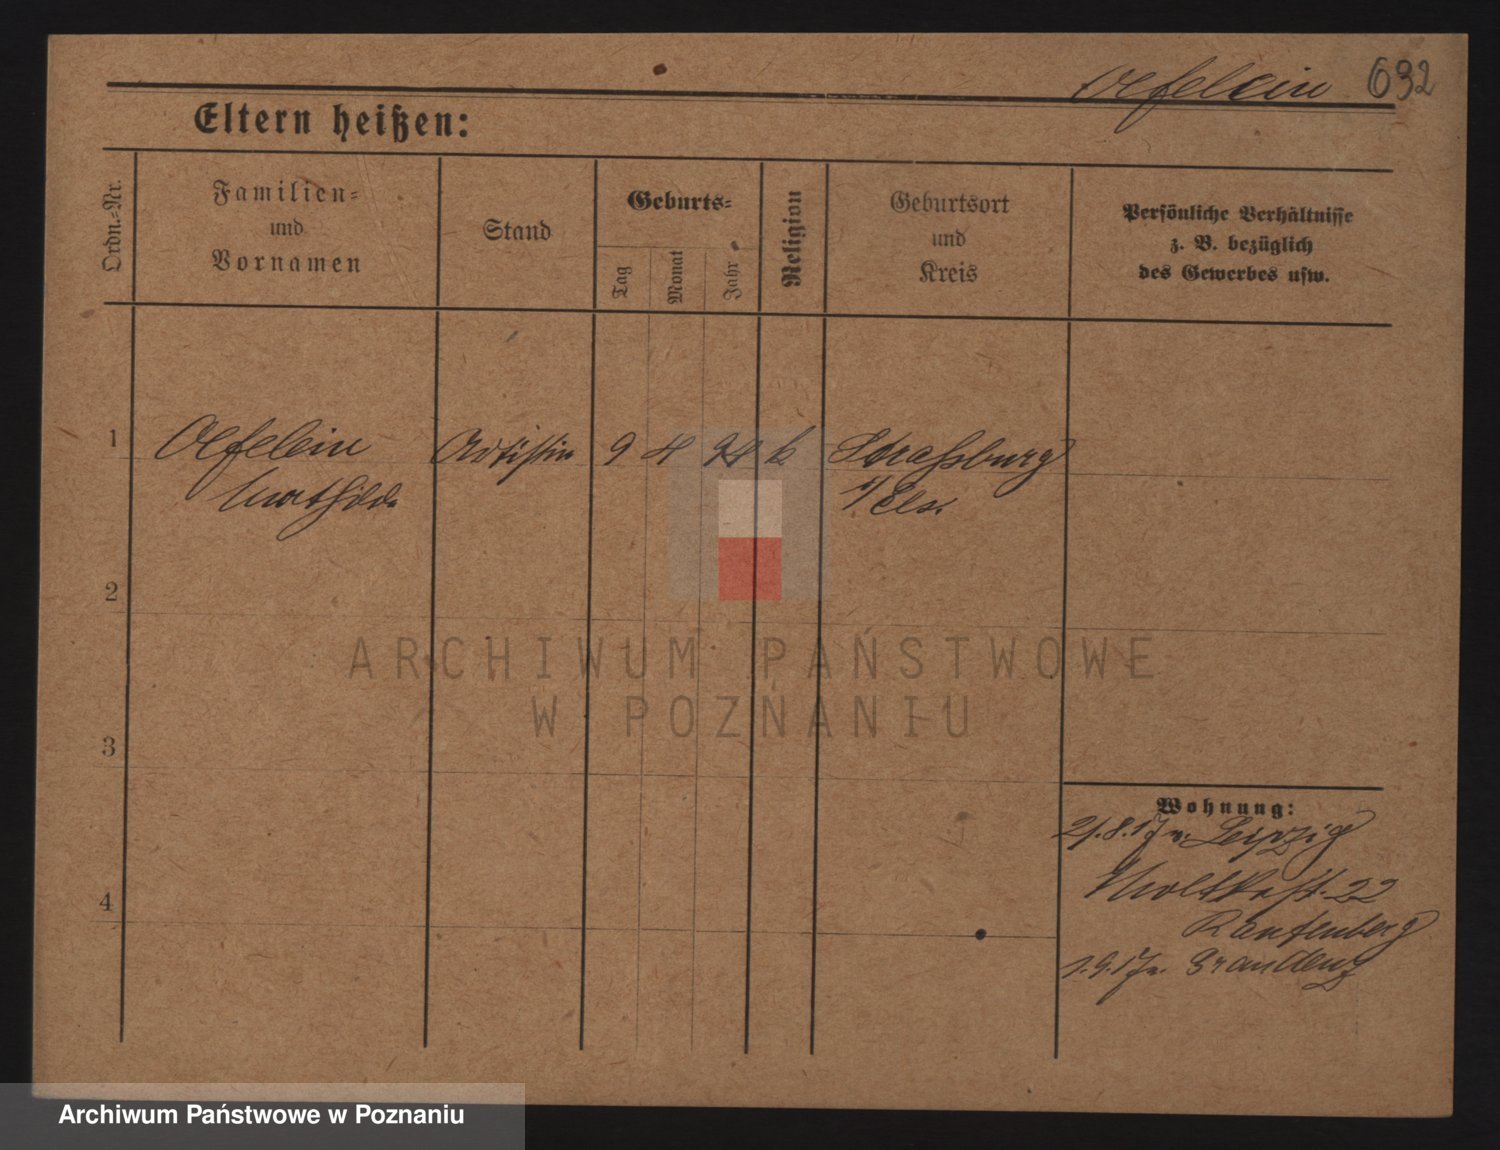 Oefelein 632
Eltern heißen:
Ordn.=Nr.
Familien=
und
Vornamen
Stand
Geburts=
Tag
Monat
Jahr
Religion
Geburtsort
und
Kreis
Persönliche Verhältnisse
z. B. bezüglich
des Gewerbes usw.
1 Oefelein Artistin 9 4 94 k Strassburg
Mathilde i/Els.
2
3
4
Wohnung:
21.8.17 v. Leipzig
Moltkestr. 22
Rautenberg
1.9.17 n. Graudenz
ARCHIWUM PAŃSTWOWE
W POZNANIU
Archiwum Państwowe w Poznaniu